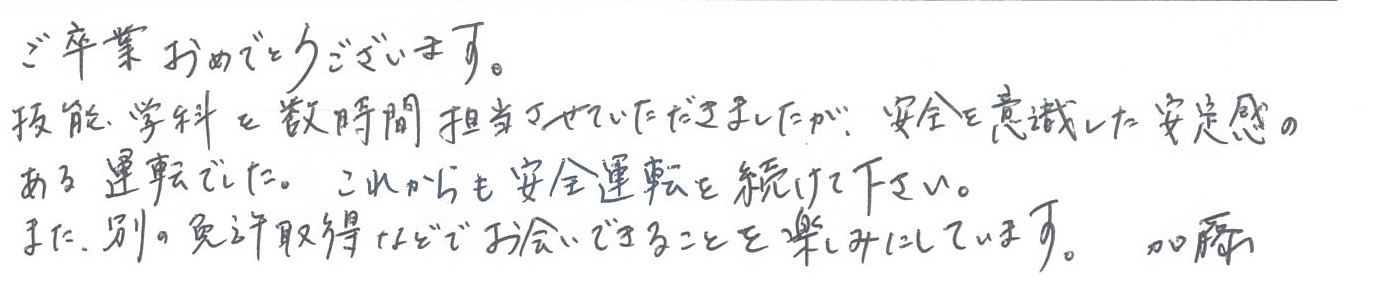 ご卒業おめでとうございます。
技能、学科を数時間担当させていただきましたが、安全を意識した安定感の
ある運転でした。これからも安全運転を続けて下さい。
また、別の免許取得などでお会いできることを楽しみにしています。 加藤